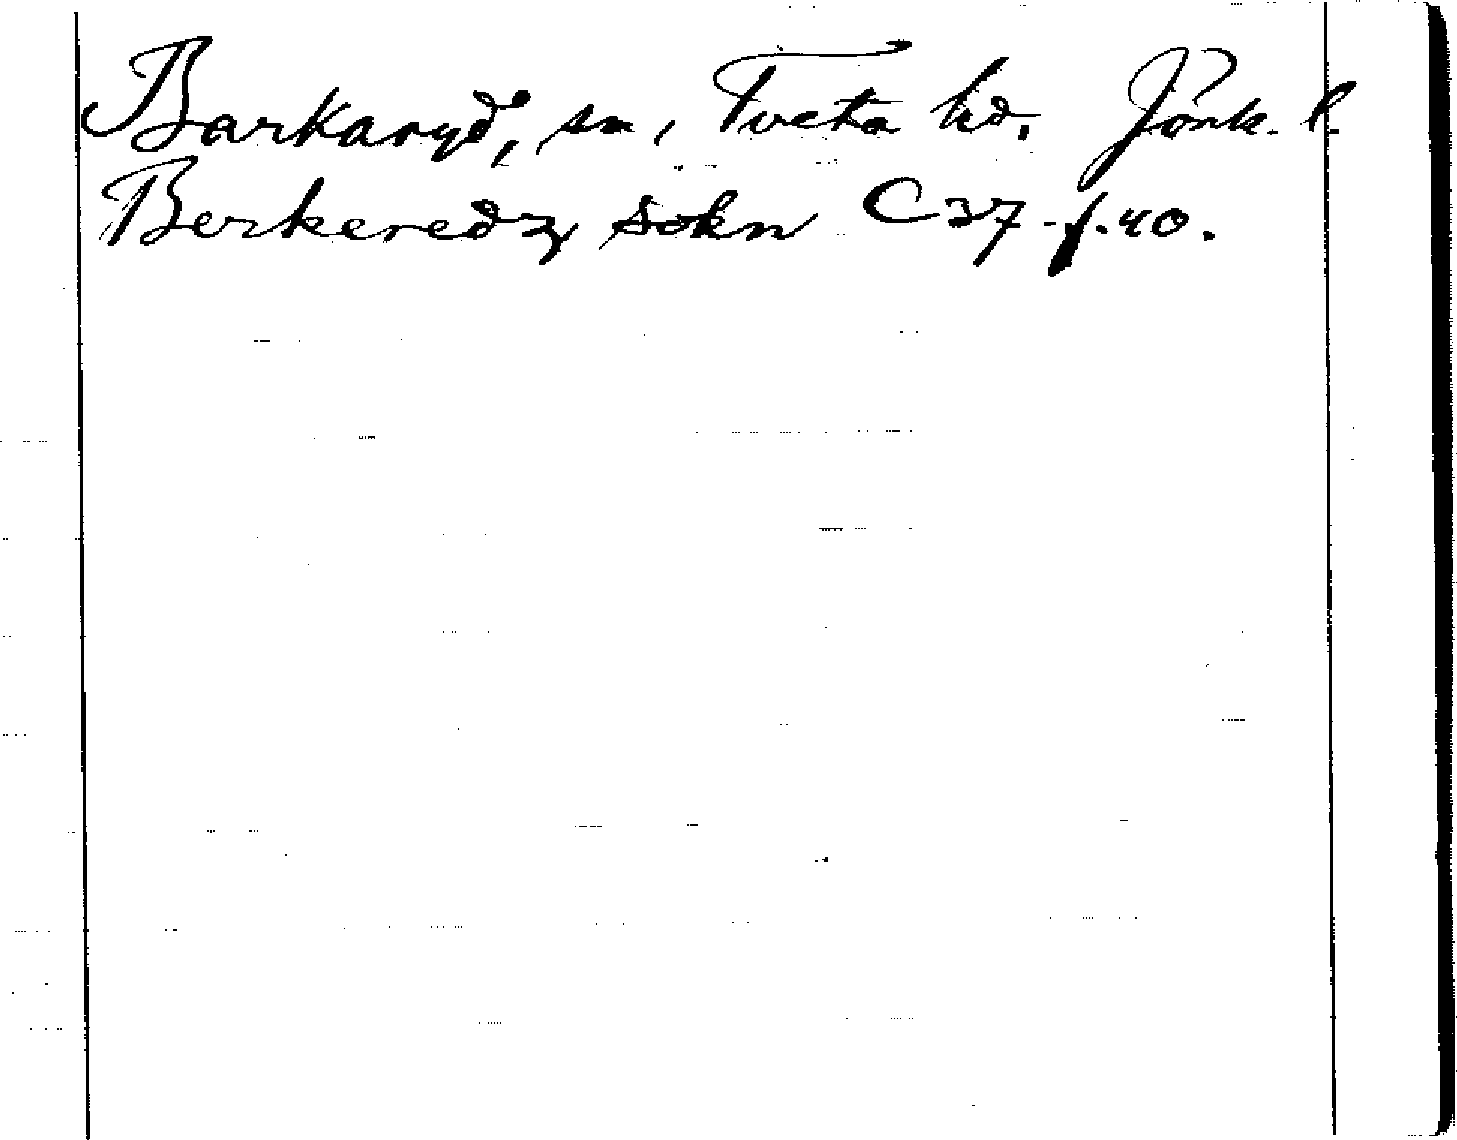 Barkaryd, sn, Tveta hd. Jönk. l.
Berkeredz sokn C 37 f. 40.